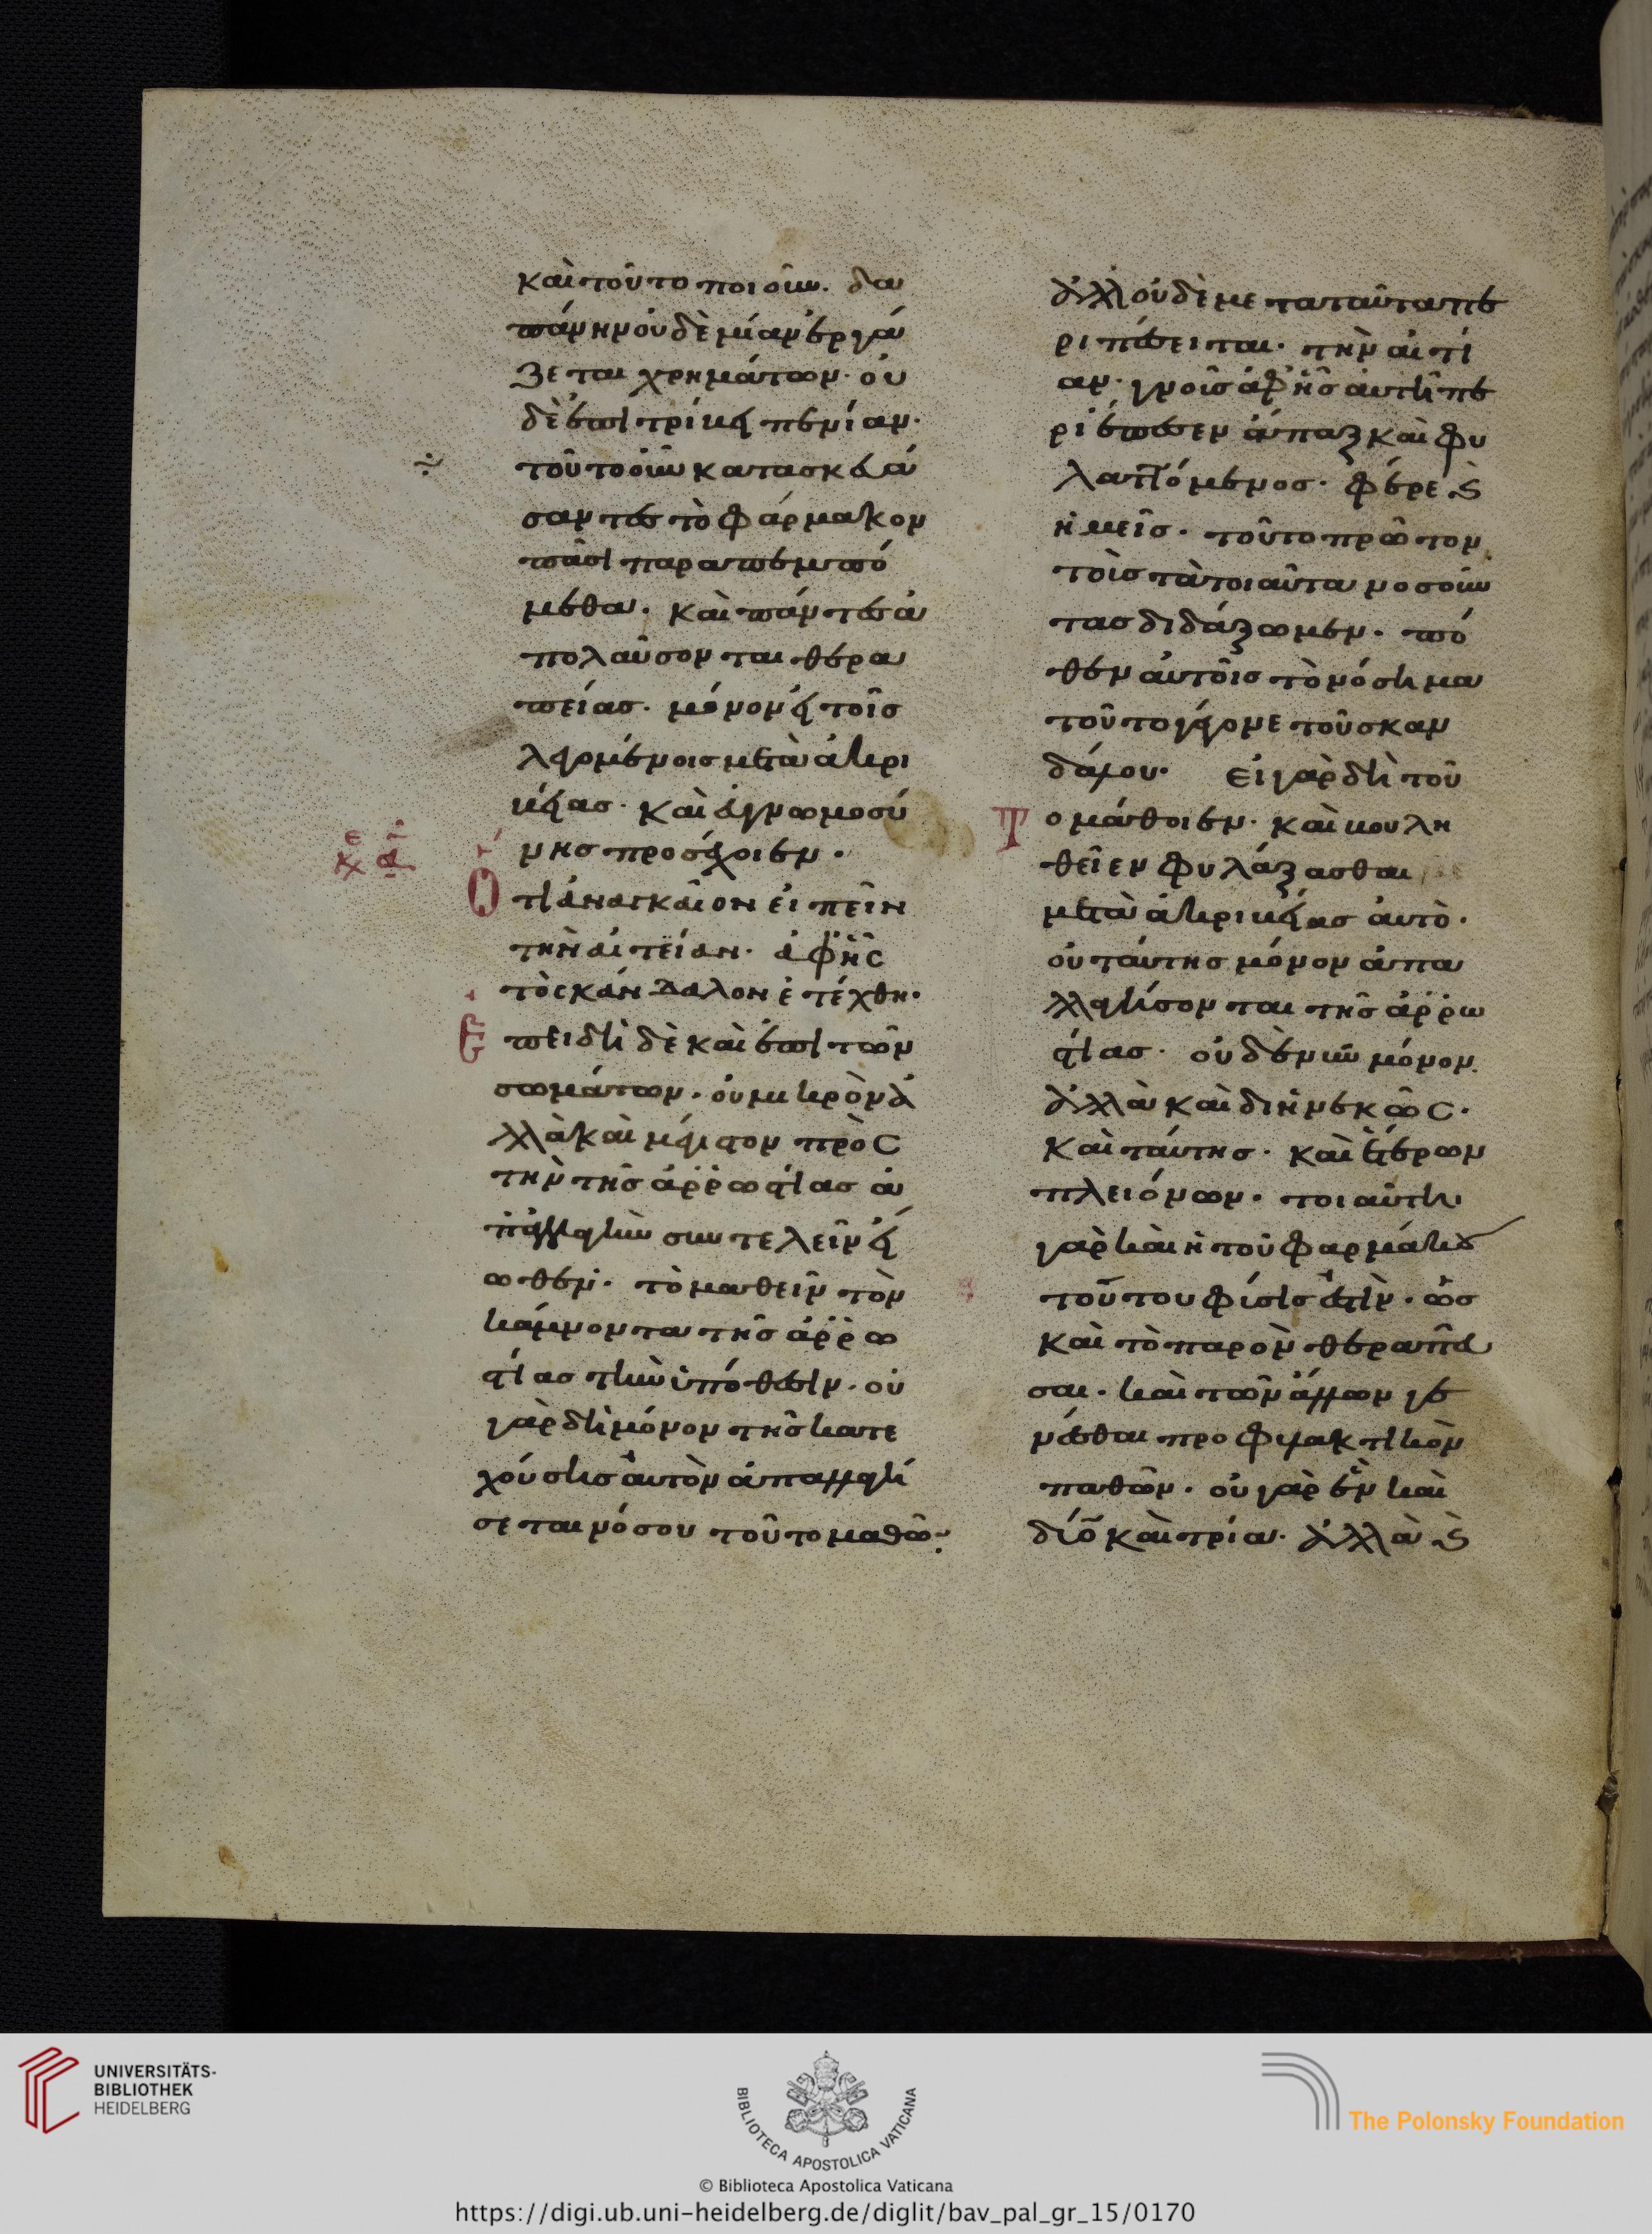 καὶ τοῦτο ποιοῦν. δα
πάνην οὐδὲ μίαν ἐργά
ζεται χρημάτων· οὐ
δὲ ἐπιτρίβει πενίαν·
τοῦτο οὖν κατασκευά
σαντες τὸ φάρμακον
πᾶσι παραπεμπό
μεθα. καὶ πάντες ἀ
πολαύσονται θερα
πείας. μόνον εἰ τοῖς
λεγομένοις μετὰ ἀκρι
βείας· καὶ εὐγνωμοσύ
νης προσέχοιεν·
κε α
Ὅτι ἀναγκαῖον εἰπεῖν
τὴν αἰτείαν· ἀφ' ἧς
τὸ σκάνδαλον ἐτέχθη·
Ἐπειδὴ δὲ καὶ ἐπὶ τῶν
σωμάτων. οὐ μικρὸν ἀ
λλὰ καὶ μέγιστον πρὸς
τὴν τῆς ἀρρωστίας ἀ
παλλαγὴν συντελεῖν εἴ
ωθεν· τὸ μαθεῖν τὸν
κάμνοντα τῆς ἀρρω
στίας τὴν ὑπόθεσιν. οὐ
γὰρ δὴ μόνον τῆς κατε
χούσης αὐτὸν ἀπαλλαγή
σεται νόσου τοῦτο μαθών·
ἀλλ' οὐδὲ μετὰ ταῦτα πε
ριπεσεῖται· τὴν αἰτί
αν· γνοὺς ἀφ' ἧς αὐτῇ πε
ριέπεσεν ἅπαξ καὶ φυ
λαττόμενος· φέρε καὶ
ἡμεῖς. τοῦτο πρῶτον
τοὺς τὰ τοιαῦτα νοσοῦν
τας διδάξωμεν. πό
θεν αὐτοῖς τὸ νόσημα
τοῦτο γέγονε τοῦ σκαν
δάλου. εἰ γὰρ δὴ τοῦ
Το μάθοιεν· καὶ βουλη
θεῖεν φυλάξασθαι
μετὰ ἀκριβείας αὐτὸ·
οὐ ταύτης μόνον ἀπα
λλαγήσονται τῆς ἀρρω
στίας· οὐδὲ νῦν μόνον.
ἀλλὰ καὶ διηνεκῶς.
καὶ ταύτης. καὶ ἑτέρων
πλειόνων. τοιαύτη
γὰρ καὶ ἡ τοῦ φαρμάκου
τούτου φύσις ἐστὶν. ὡς
καὶ τὸ παρὸν θεραπεῦ
σαι. καὶ τῶν ἄλλων γε
νέσθαι προφυλακτικὸν
παθῶν. οὐ γὰρ ἓν καὶ
δύο καὶ τρία. ἀλλὰ καὶ
UNIVERSITÄTS-
BIBLIOTHEK
HEIDELBERG
BIBLIOTECA APOSTOLICA VATICANA
The Polonsky Foundation
© Biblioteca Apostolica Vaticana
https://digi.ub.uni-heidelberg.de/diglit/bav_pal_gr_15/0170